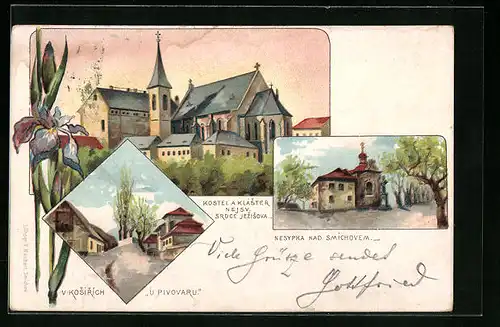 KOSTEL A KLÁŠTER
NEJSV.
SRDCE JEŽIŠOVA._
NESYPKA NAD SMÍCHOVEM._
V KOŠIŘÍCH „U PIVOVARU."
Viele Grüsse sendet
Gottfried